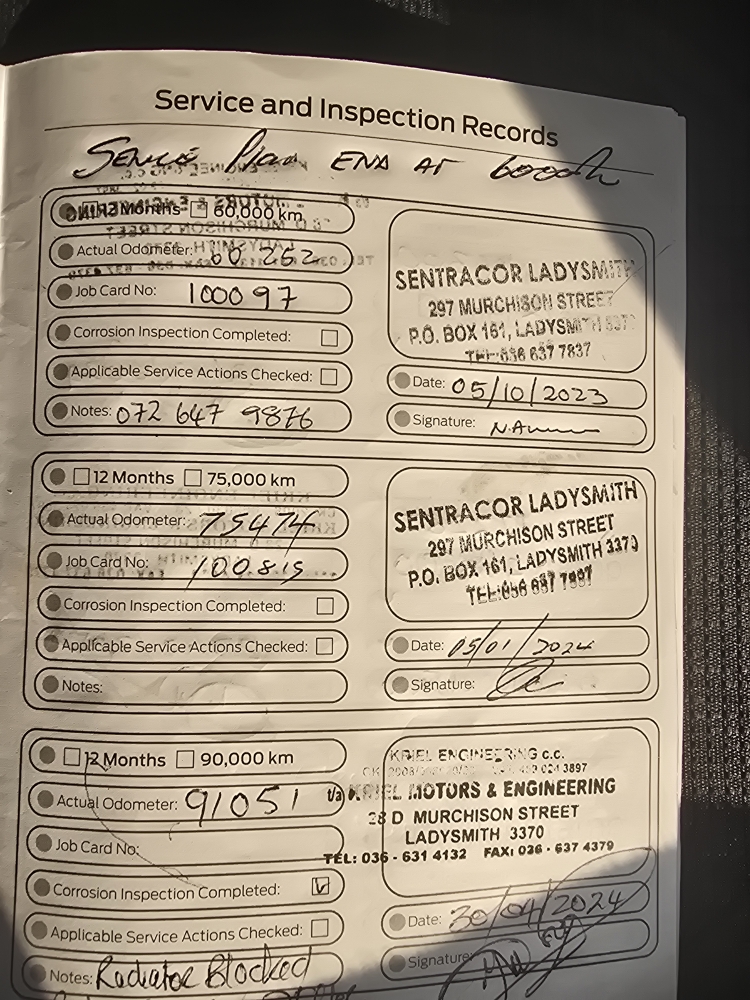 Service and Inspection Records
Service Plan END AT 60000h
12 Months 60,000 km
Actual Odometer: 60 262
Job Card No: 100097
Corrosion Inspection Completed:
Applicable Service Actions Checked:
Notes: 072 647 9876
SENTRACOR LADYSMITH
297 MURCHISON STREET
P.O. BOX 161, LADYSMITH 3370
TEL:036 637 7837
Date: 05/10/2023
Signature:
12 Months 75,000 km
Actual Odometer: 75474
Job Card No: 100815
Corrosion Inspection Completed:
Applicable Service Actions Checked:
Notes:
SENTRACOR LADYSMITH
297 MURCHISON STREET
P.O. BOX 161, LADYSMITH 3370
TEL:036 637
Date: 05/01/2024
Signature:
12 Months 90,000 km
Actual Odometer: 91051
Job Card No:
Corrosion Inspection Completed:
Applicable Service Actions Checked:
Notes: Radiator Blocked
KRIEL ENGINEERING c.c.
t/a KRIEL MOTORS & ENGINEERING
28 D MURCHISON STREET
LADYSMITH 3370
TEL: 036 - 631 4132 FAX: 036 - 637 4379
Date: 30/04/2024
Signature: